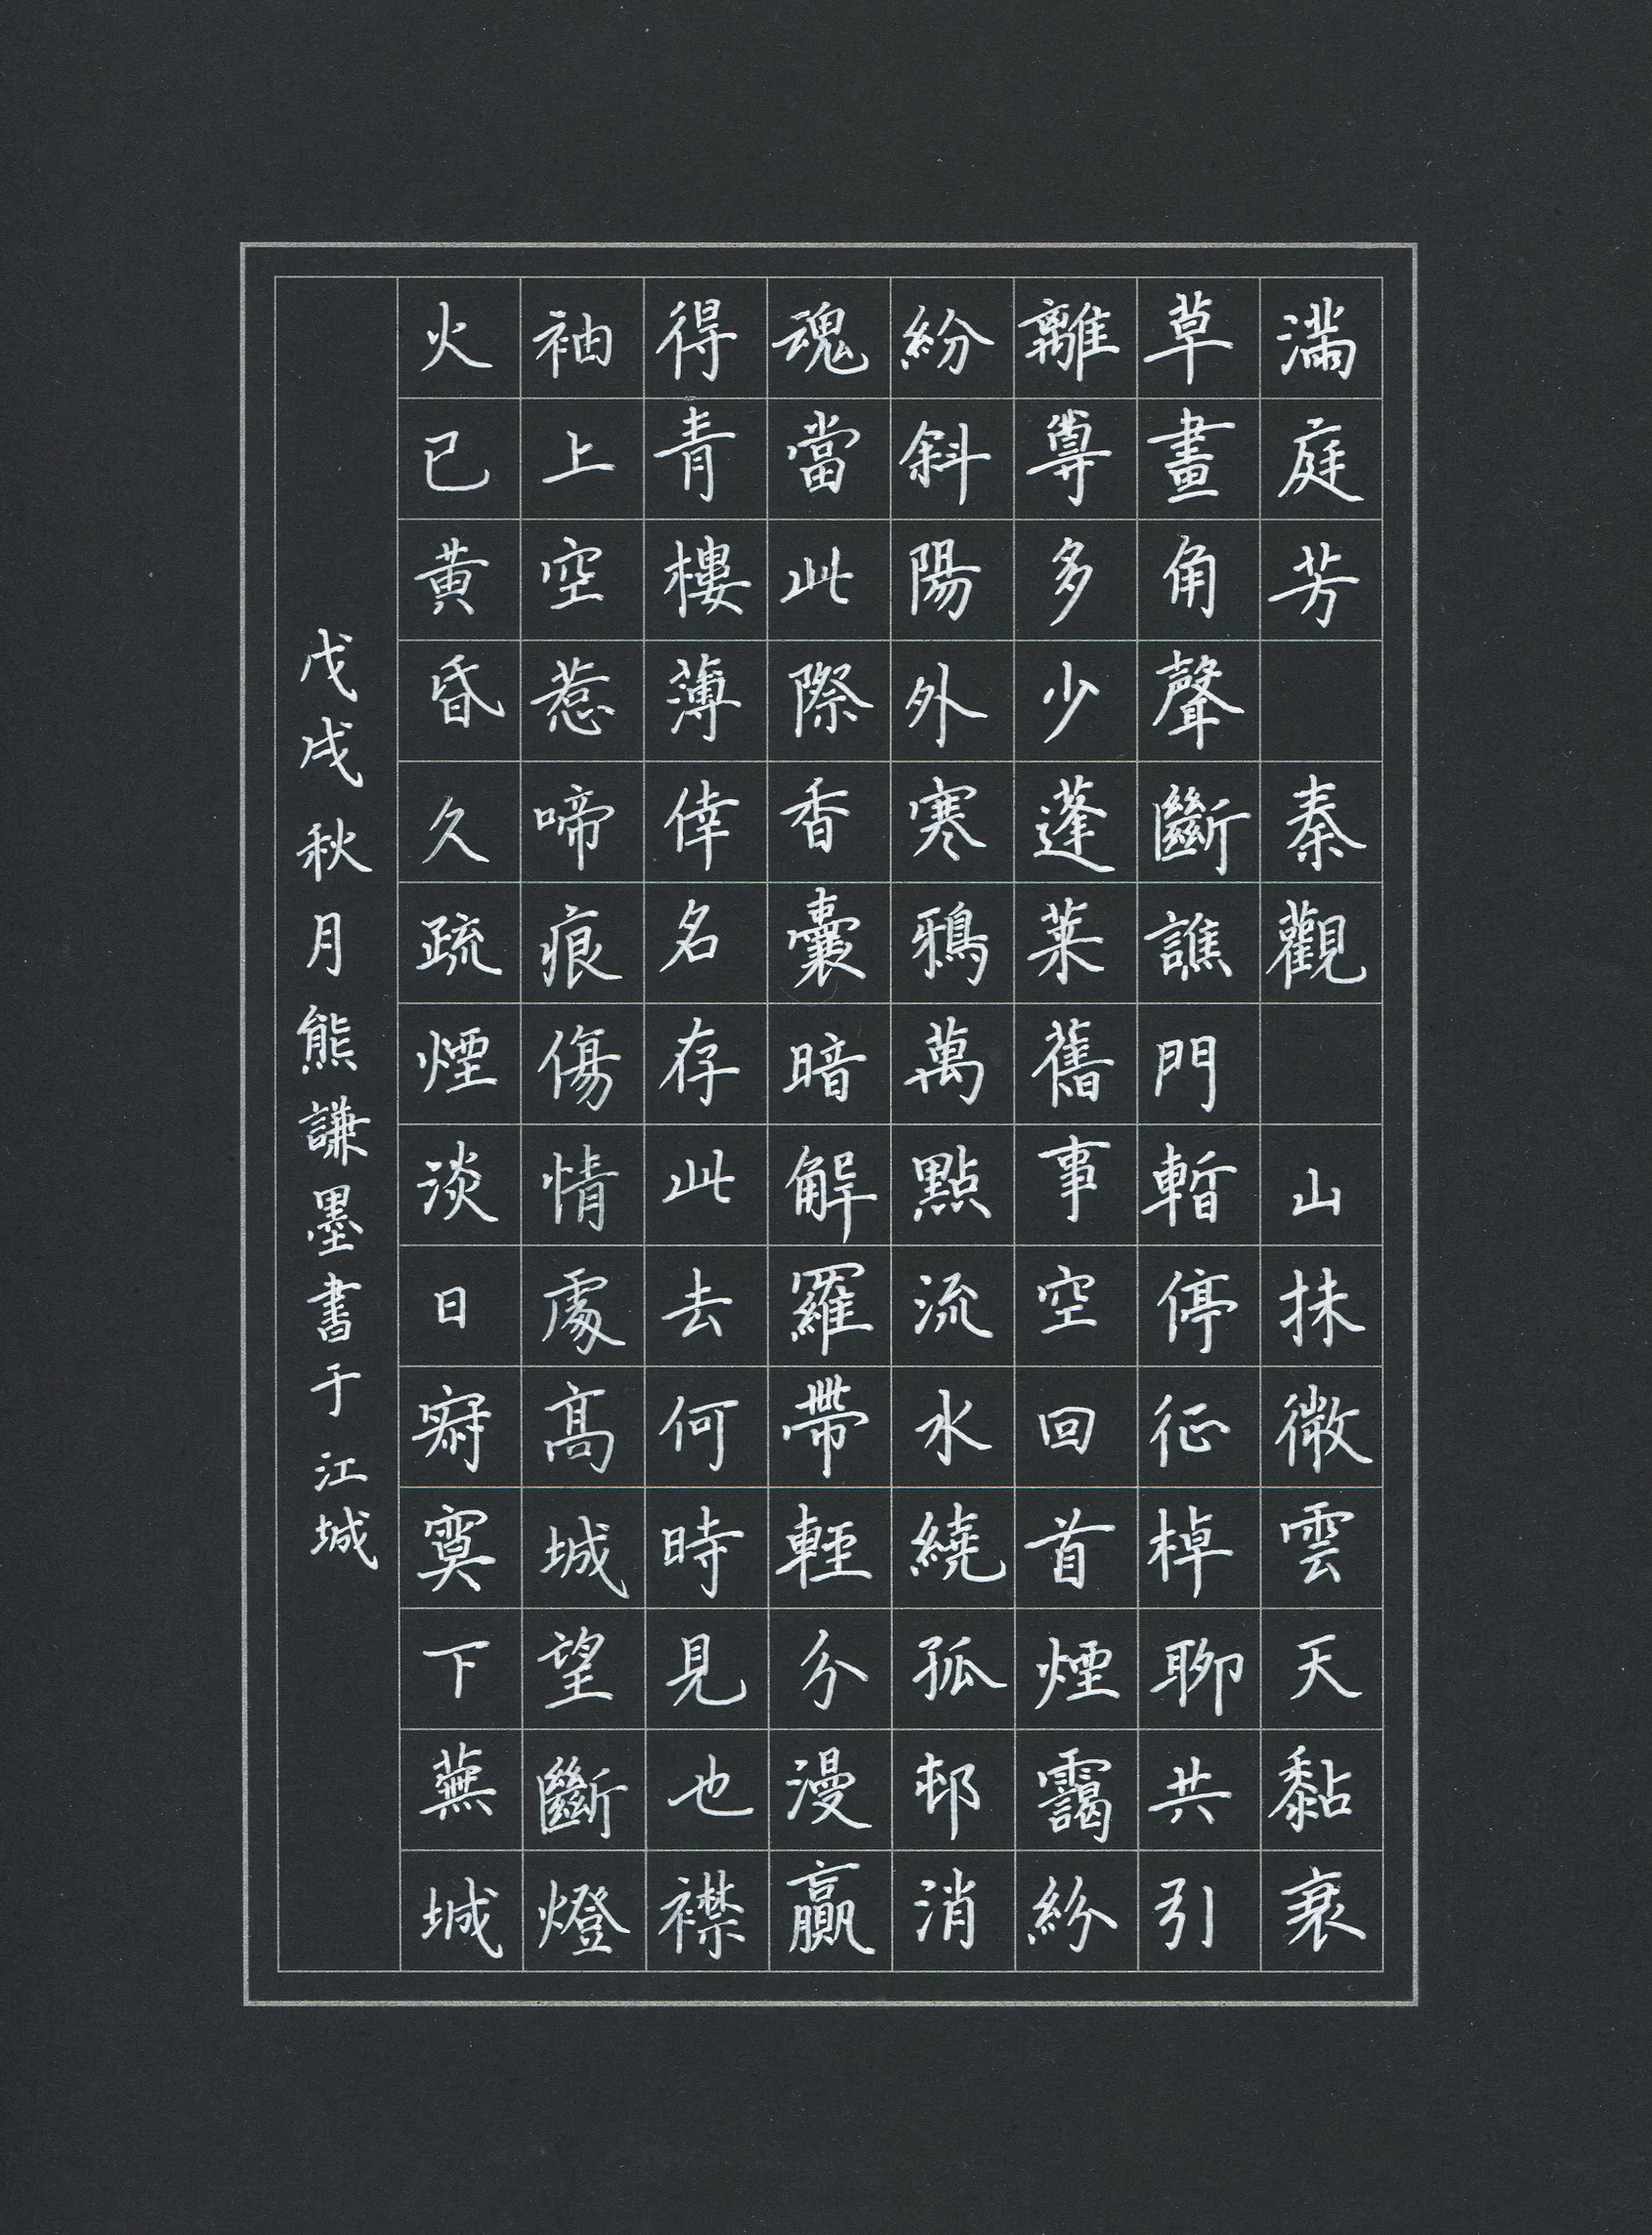 滿庭芳　秦觀　山抹微雲天黏衰
草畫角聲斷譙門暫停征棹聊共引
離尊多少蓬萊舊事空回首煙靄紛
紛斜陽外寒鴉萬點流水繞孤邨消
魂當此際香囊暗解羅帶輕分漫贏
得青樓薄倖名存此去何時見也襟
袖上空惹啼痕傷情處高城望斷燈
火已黃昏久疏煙淡日寂寞下蕪城
戊戌秋月熊謙墨書于江城